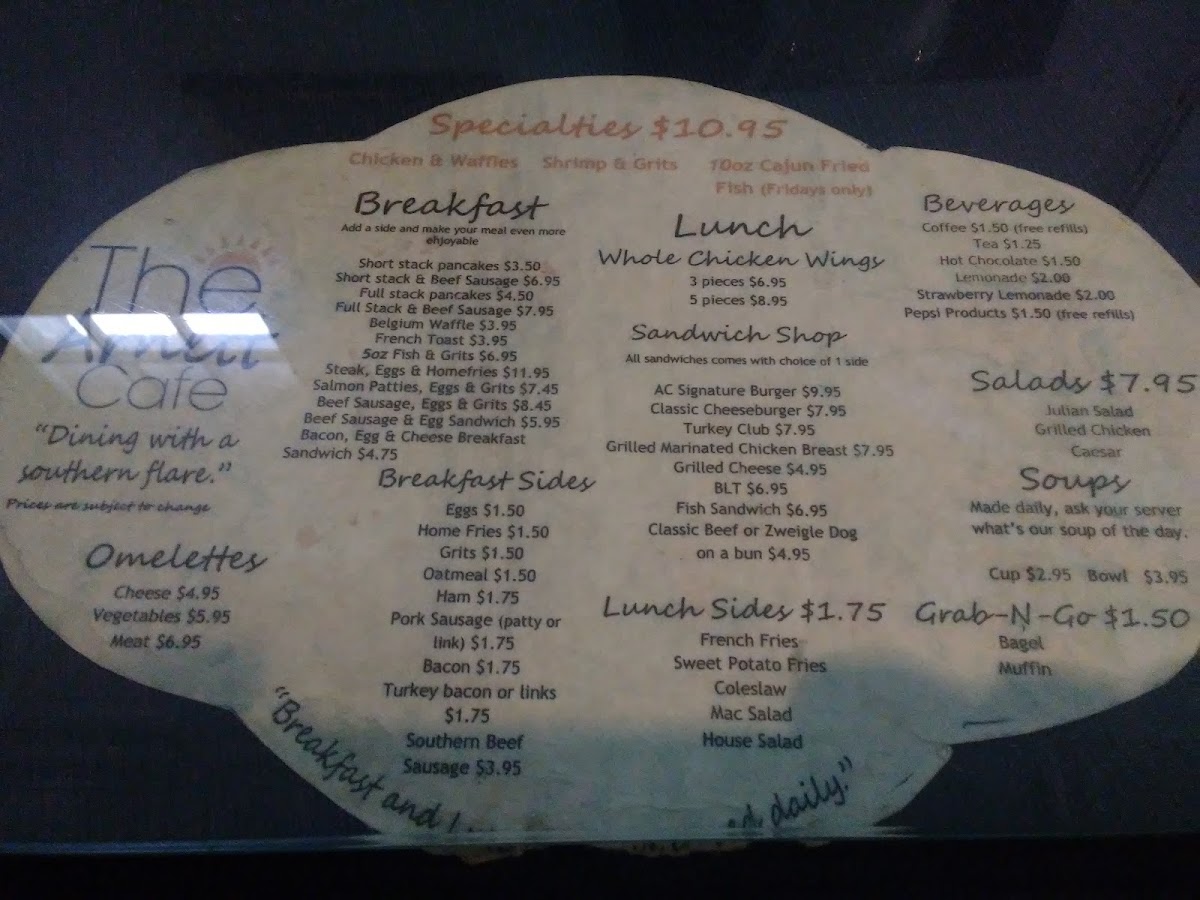 Specialties $10.95
Chicken & Waffles Shrimp & Grits 10oz Cajun Fried
Fish (Fridays only)
The
Arnett
Cafe
"Dining with a
southern flare."
Prices are subject to change
Omelettes
Cheese $4.95
Vegetables $5.95
Meat $6.95
Breakfast
Add a side and make your meal even more
ehjoyable
Short stack pancakes $3.50
Short stack & Beef Sausage $6.95
Full stack pancakes $4.50
Full Stack & Beef Sausage $7.95
Belgium Waffle $3.95
French Toast $3.95
5oz Fish & Grits $6.95
Steak, Eggs & Homefries $11.95
Salmon Patties, Eggs & Grits $7.45
Beef Sausage, Eggs & Grits $8.45
Beef Sausage & Egg Sandwich $5.95
Bacon, Egg & Cheese Breakfast
Sandwich $4.75
Breakfast Sides
Eggs $1.50
Home Fries $1.50
Grits $1.50
Oatmeal $1.50
Ham $1.75
Pork Sausage (patty or
link) $1.75
Bacon $1.75
Turkey bacon or links
$1.75
Southern Beef
Sausage $3.95
Lunch
Whole Chicken Wings
3 pieces $6.95
5 pieces $8.95
Sandwich Shop
All sandwiches comes with choice of 1 side
AC Signature Burger $9.95
Classic Cheeseburger $7.95
Turkey Club $7.95
Grilled Marinated Chicken Breast $7.95
Grilled Cheese $4.95
BLT $6.95
Fish Sandwich $6.95
Classic Beef or Zweigle Dog
on a bun $4.95
Lunch Sides $1.75
French Fries
Sweet Potato Fries
Coleslaw
Mac Salad
House Salad
Beverages
Coffee $1.50 (free refills)
Tea $1.25
Hot Chocolate $1.50
Lemonade $2.00
Strawberry Lemonade $2.00
Pepsi Products $1.50 (free refills)
Salads $7.95
Julian Salad
Grilled Chicken
Caesar
Soups
Made daily, ask your server
what's our soup of the day.
Cup $2.95 Bowl $3.95
Grab-N-Go $1.50
Bagel
Muffin
"Breakfast and daily."